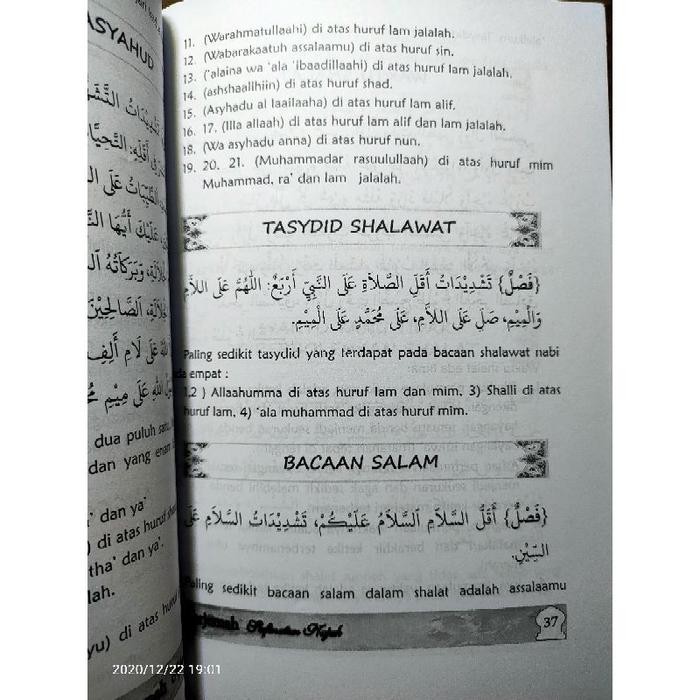 ASYAHUD
dua puluh satu,
dan yang enam
a' dan ya'
) di atas huruf sha
tha' dan ya'.
lah.
yu) di atas huru
11. (Warahmatullaahi) di atas huruf lam jalalah.
12. (Wabarakaatuh assalaamu) di atas huruf sin.
13. ('alaina wa 'ala 'ibaadillaahi) di atas huruf lam jalalah.
14. (ashshaallhiin) di atas huruf shad.
15. (Asyhadu al laailaaha) di atas huruf lam alif.
16. 17. (Illa allaah) di atas huruf lam alif dan lam jalalah.
18. (Wa asyhadu anna) di atas huruf nun.
19. 20. 21. (Muhammadar rasuulullaah) di atas huruf mim
Muhammad, ra' dan lam jalalah.
TASYDID SHALAWAT
{فَصْلٌ} تَشْدِيْدَاتُ أَقَلِّ الصَّلاَةِ عَلَى النَّبِيِّ أَرْبَعٌ: اَللّٰهُمَّ عَلَى اللاَّمِ
وَالْمِيْمِ، صَلِّ عَلَى اللاَّمِ، عَلَى مُحَمَّدٍ عَلَى الْمِيْمِ.
Paling sedikit tasydid yang terdapat pada bacaan shalawat nabi
da empat :
1,2 ) Allaahumma di atas huruf lam dan mim, 3) Shalli di atas
huruf lam, 4) 'ala muhammad di atas huruf mim.
BACAAN SALAM
{فَصْلٌ} أَقَلُّ السَّلاَمِ اَلسَّلاَمُ عَلَيْكُمْ، تَشْدِيْدَاتُ السَّلاَمِ عَلَى
السِّيْنِ.
Paling sedikit bacaan salam dalam shalat adalah assalaamu
Safinatun Najah
37
2020/12/22 19:01